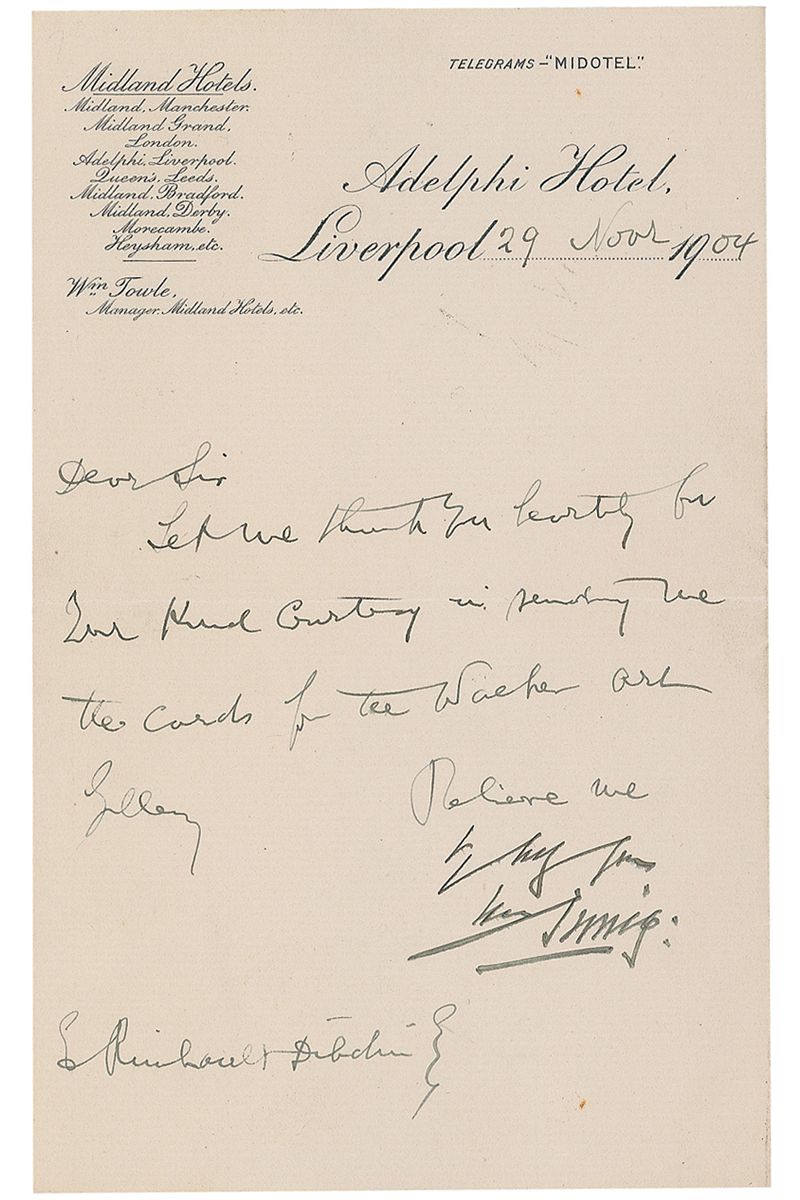 TELEGRAMS – "MIDOTEL".
Midland Hotels.
Midland, Manchester.
Midland Grand,
London.
Adelphi, Liverpool.
Queen's, Leeds.
Midland, Bradford.
Midland, Derby.
Morecambe.
Heysham, etc.
Wm Towle,
Manager, Midland Hotels, etc.
Adelphi Hotel,
Liverpool 29 Novr 1904
Dear Sir
Let me thank you heartily for
Your Kind Courtesy in sending me
the cards for the Walker Art
Gallery
Believe me
Irving:
E Rimbault Dibdin Esq